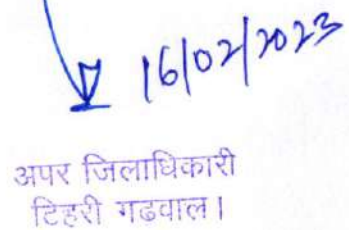 16/02/2023
अपर जिलाधिकारी
टिहरी गढवाल।